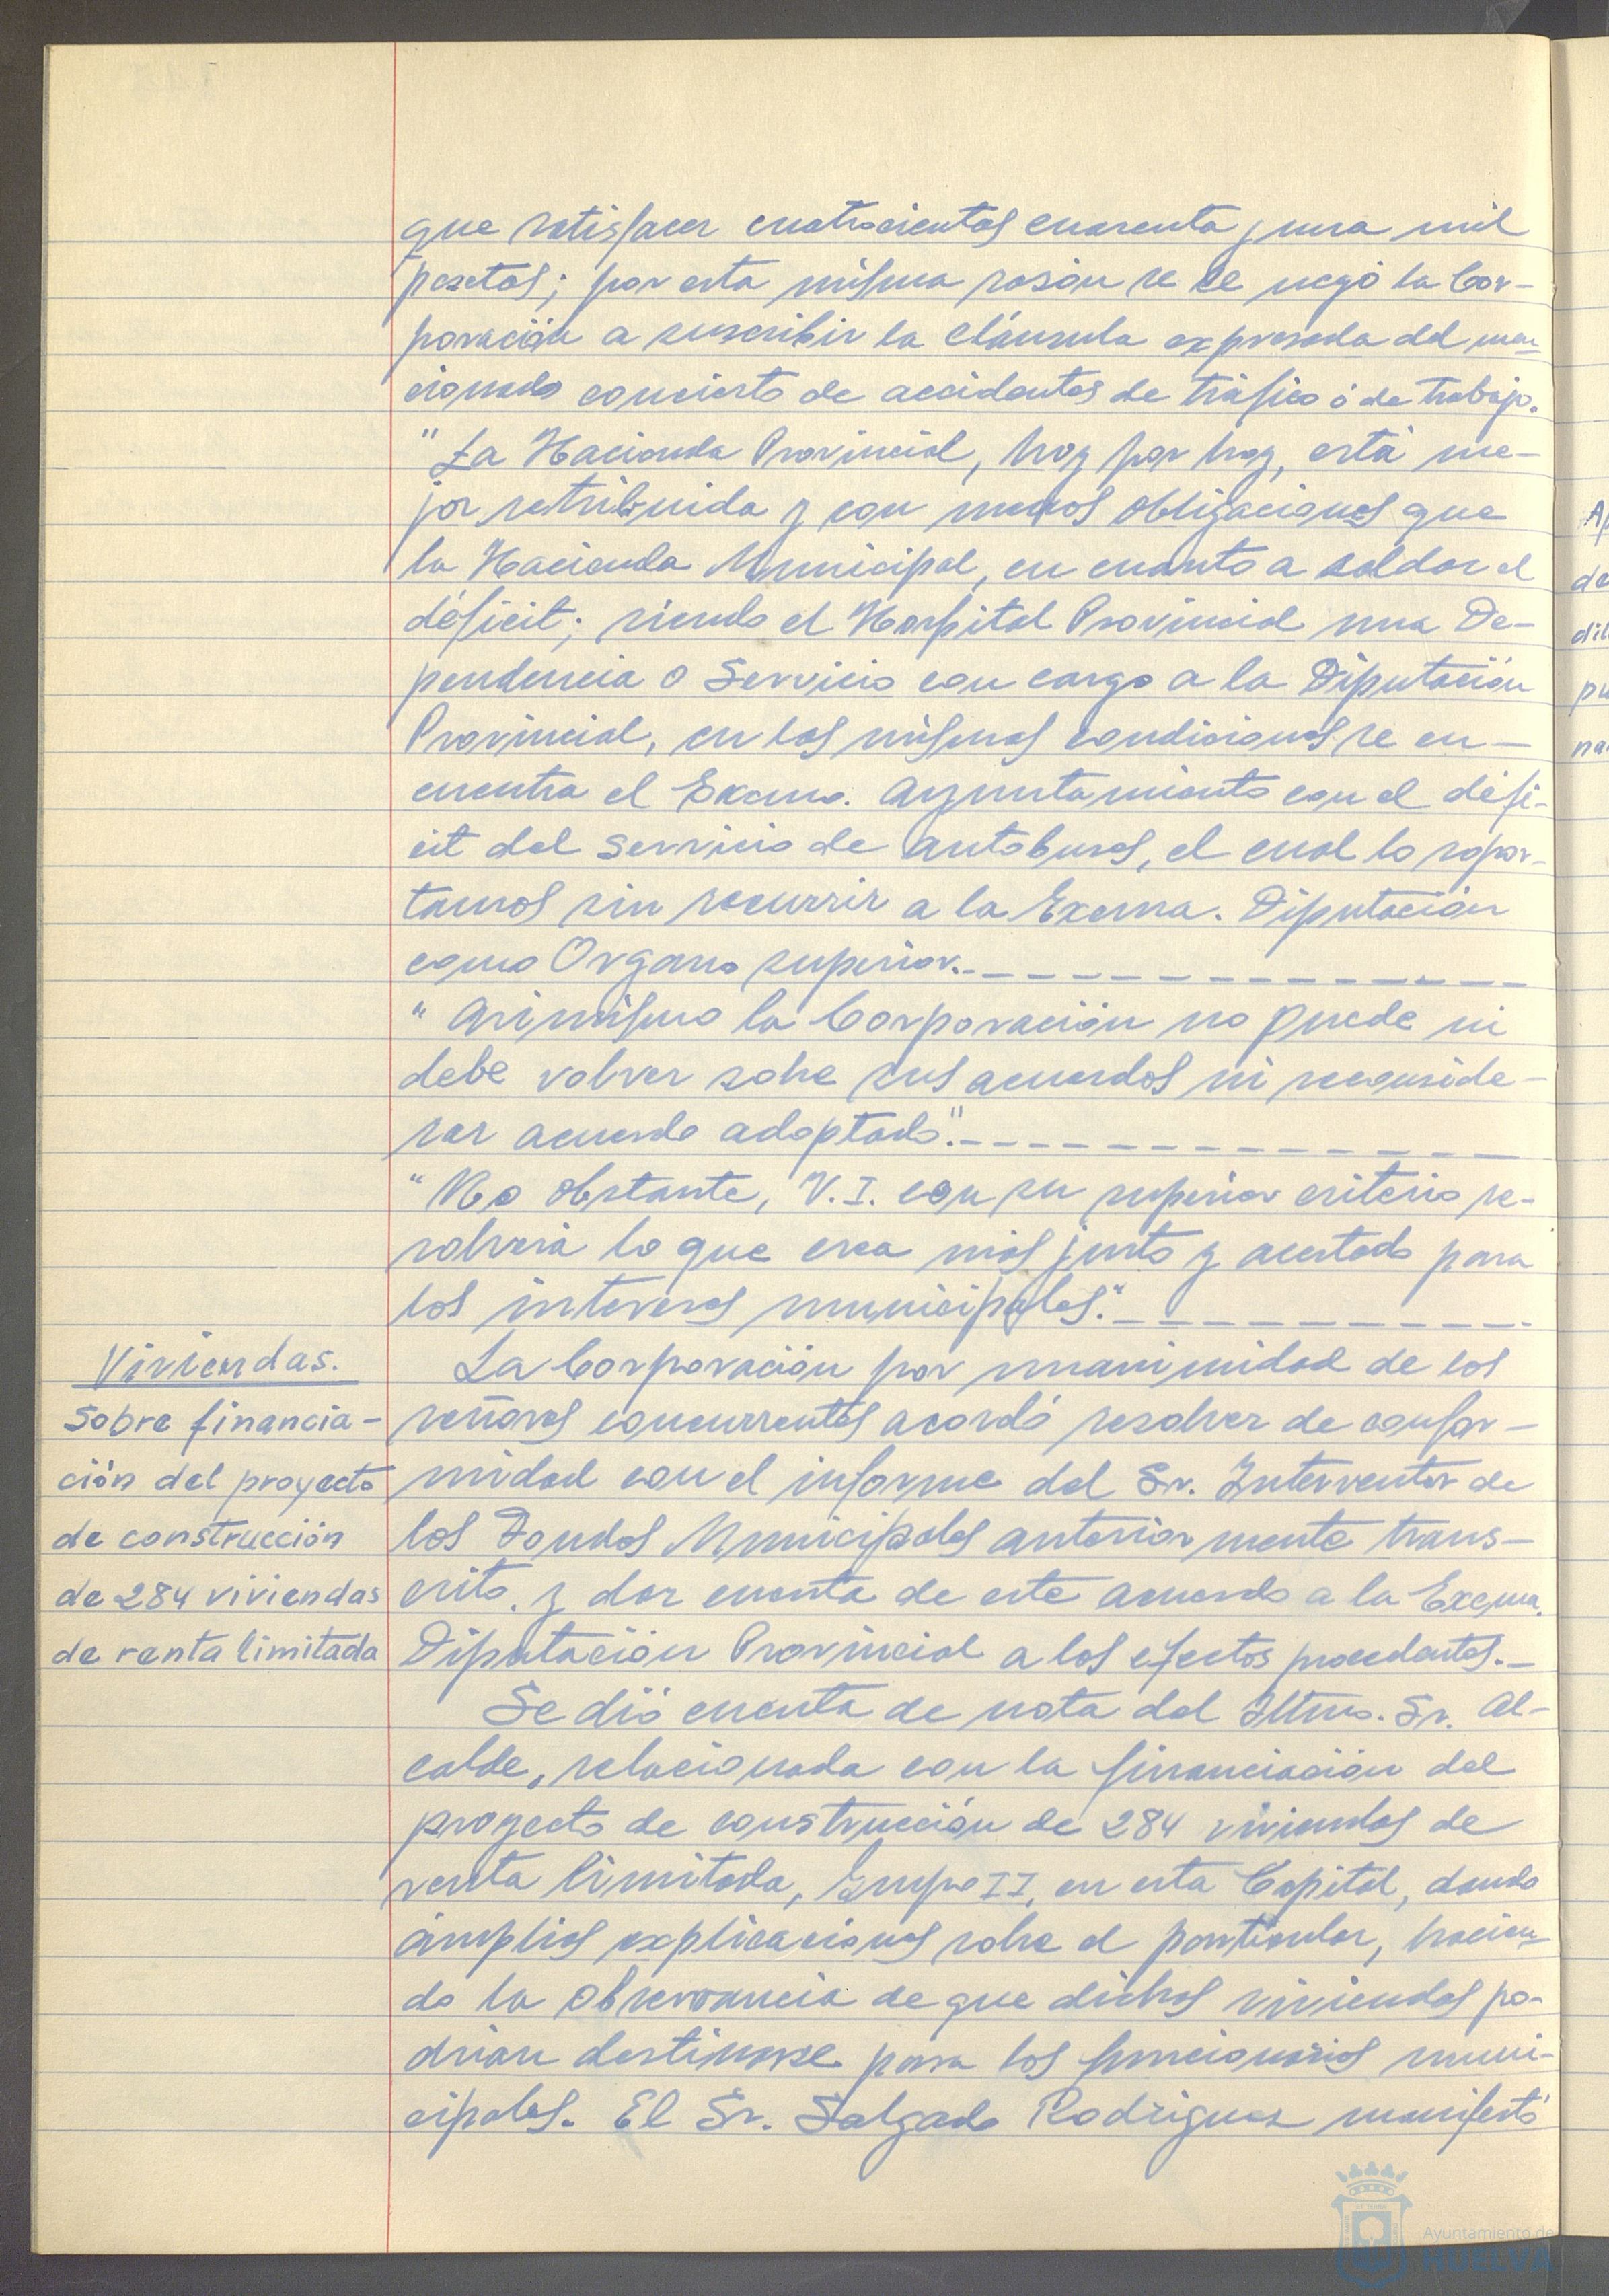 que satisfacer cuatrocientas cuarenta y una mil
pesetas; por esta misma razón se le negó la Cor-
poración a suscribir la cláusula expresada del men-
cionado concierto de accidentes de tráfico ó de trabajo.
"La Hacienda Provincial, hoy por hoy, está me-
jor retribuida y con menos obligaciones que
la Hacienda Municipal, en cuanto a saldar el
déficit; siendo el Hospital Provincial una De-
pendencia o Servicio con cargo a la Diputación
Provincial, en las mismas condiciones se en-
cuentra el Excmo. Ayuntamiento con el défi-
cit del servicio de autobuses, el cual lo sopor-
tamos sin recurrir a la Excma. Diputación
como Organo superior.
"Asimismo la Corporación no puede ni
debe volver sobre sus acuerdos ni reconside-
rar acuerdo adoptado".
"No obstante, V.I. con su superior criterio re-
solverá lo que crea más justo y acertado para
los intereses municipales."
Viviendas.
Sobre financia-
ción del proyecto
de construcción
de 284 viviendas
de renta limitada
La Corporación por unanimidad de los
señores concurrentes acordó resolver de confor-
midad con el informe del Sr. Interventor de
los Fondos Municipales anteriormente trans-
crito, y dar cuenta de este acuerdo a la Excma.
Diputación Provincial a los efectos procedentes.-
Se dió cuenta de nota del Iltmo. Sr. Al-
calde, relacionada con la financiación del
proyecto de construcción de 284 viviendas de
renta limitada, Grupo II, en esta Capital, dando
ámplias explicaciones sobre el particular, hacien-
do la observancia de que dichas viviendas po-
drían destinarse para los funcionarios muni-
cipales. El Sr. Salgado Rodríguez manifestó
Ap
de
dil
pu
na
Ayuntamiento de
HUELVA